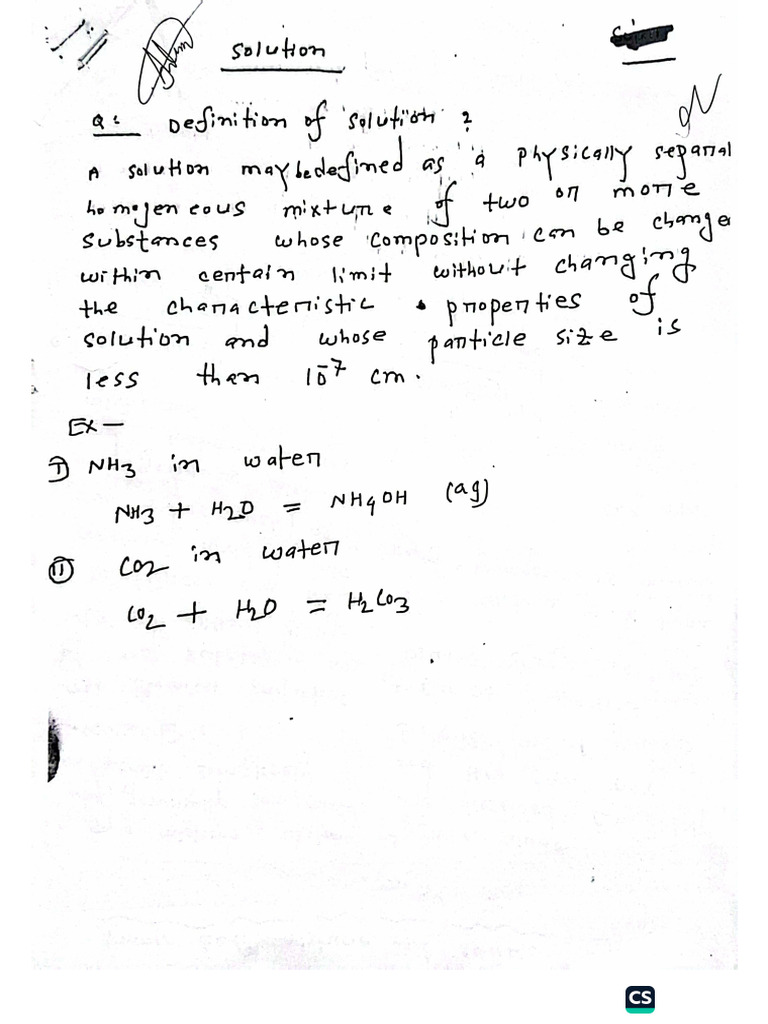 Solution
Q: Definition of solution ?
A solution may be defined as a physically separal
homogeneous mixture of two or more
substances whose composition can be change
within certain limit without changing
the characteristic properties of
solution and whose particle size is
less than 10⁻⁷ cm.
Ex —
I) NH3 in water
NH3 + H2O = NH4OH (aq)
II) CO2 in water
CO2 + H2O = H2CO3
CS